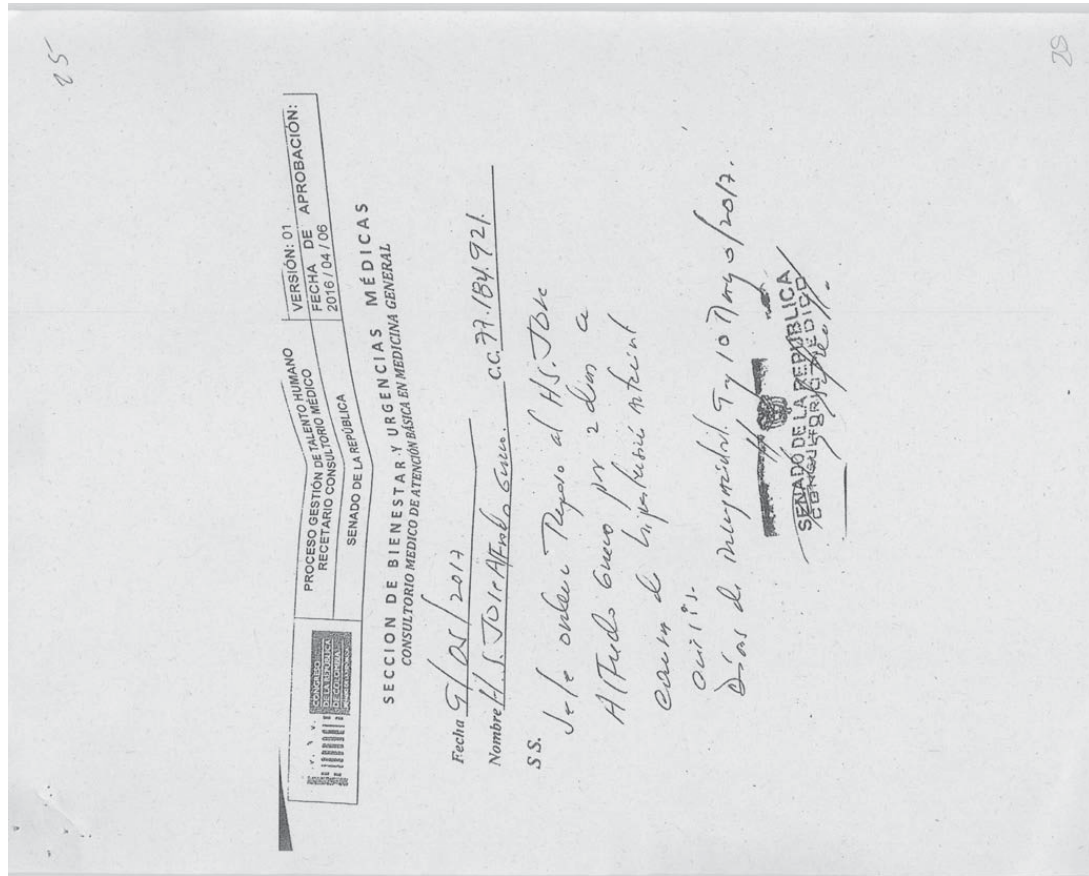 25
CONGRESO
DE LA REPÚBLICA
DE COLOMBIA
PROCESO GESTIÓN DE TALENTO HUMANO
RECETARIO CONSULTORIO MÉDICO
SENADO DE LA REPÚBLICA
VERSIÓN: 01
FECHA DE APROBACIÓN:
2016 / 04 / 06
SECCION DE BIENESTAR Y URGENCIAS MÉDICAS
CONSULTORIO MEDICO DE ATENCIÓN BÁSICA EN MEDICINA GENERAL
Fecha 9/05/2017
Nombre H.S. JOSE Alfredo Gnecco. C.C. 77.184.921.
SS.
Se le ordena Reposo al H.S. JOSE
Alfredo Gnecco por 2 dias a
causa de hipertensión arterial
crisis.
Dias de incapacidad. 9 y 10 Mayo/2017.
SENADO DE LA REPÚBLICA
CONSULTORIO MEDICO
28